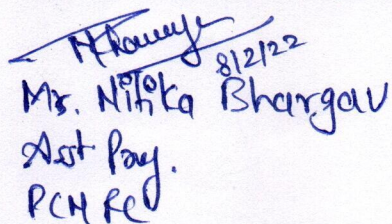 8/2/22
Mr. Nitika Bhargav
Asst Prof.
PCMRC